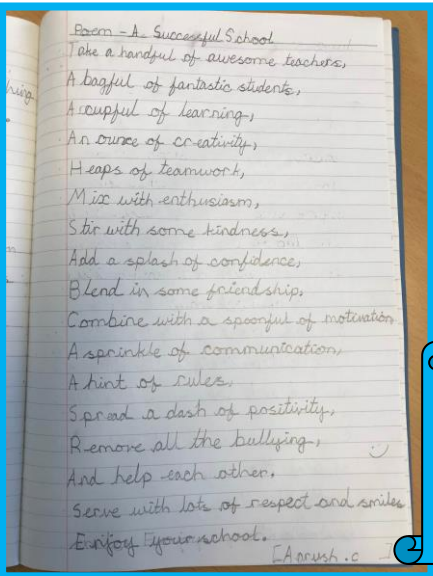 Poem - A Successful School
Take a handful of awesome teachers,
A bagful of fantastic students,
A cupful of learning,
An ounce of creativity,
Heaps of teamwork,
Mix with enthusiasm,
Stir with some kindness,
Add a splash of confidence,
Blend in some friendship,
Combine with a spoonful of motivation
A sprinkle of communication,
A hint of rules,
Spread a dash of positivity,
Remove all the bullying,
And help each other.
Serve with lots of respect and smiles
Enjoy your school.
[Anrush.c ]